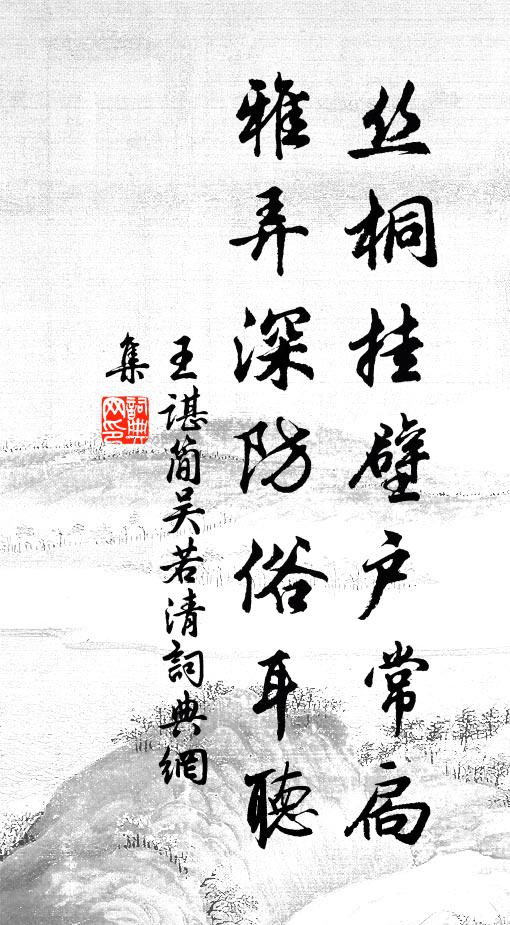 丝桐挂壁户常扃
雅弄深防俗耳聴
王谌简吴若清詞典網
集
詞典網印